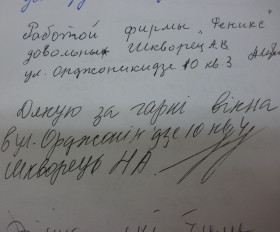 Работой фирмы „Феникс"
довольны Шкворец А.В.
ул. Орджоникидзе 10 кв.3
Дякую за гарні вікна
вул. Орджонікідзе 10 кв
Шкворець НА